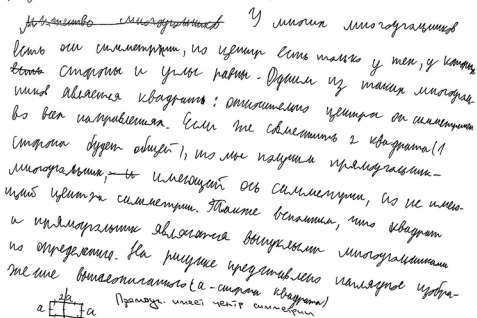 У многих многоугольников
есть оси симметрии, но центр есть только у тех, у которых
стороны и углы равны. Одним из таких многоуголь-
ников является квадрат: относительно центра он симметричен
во всех направлениях. Если же совместить 2 квадрата (1
сторона будет общей), то мы получим прямоугольник-
многоугольник, имеющий ось симметрии, но не имею-
щий центра симметрии. Также вспомним, что квадрат
и прямоугольник являются выпуклыми многоугольниками
по определению. На рисунке представлено наглядное изобра-
жение вышеописанного (a - сторона квадрата)
2a
a a Прямоуг. имеет центр симметрии